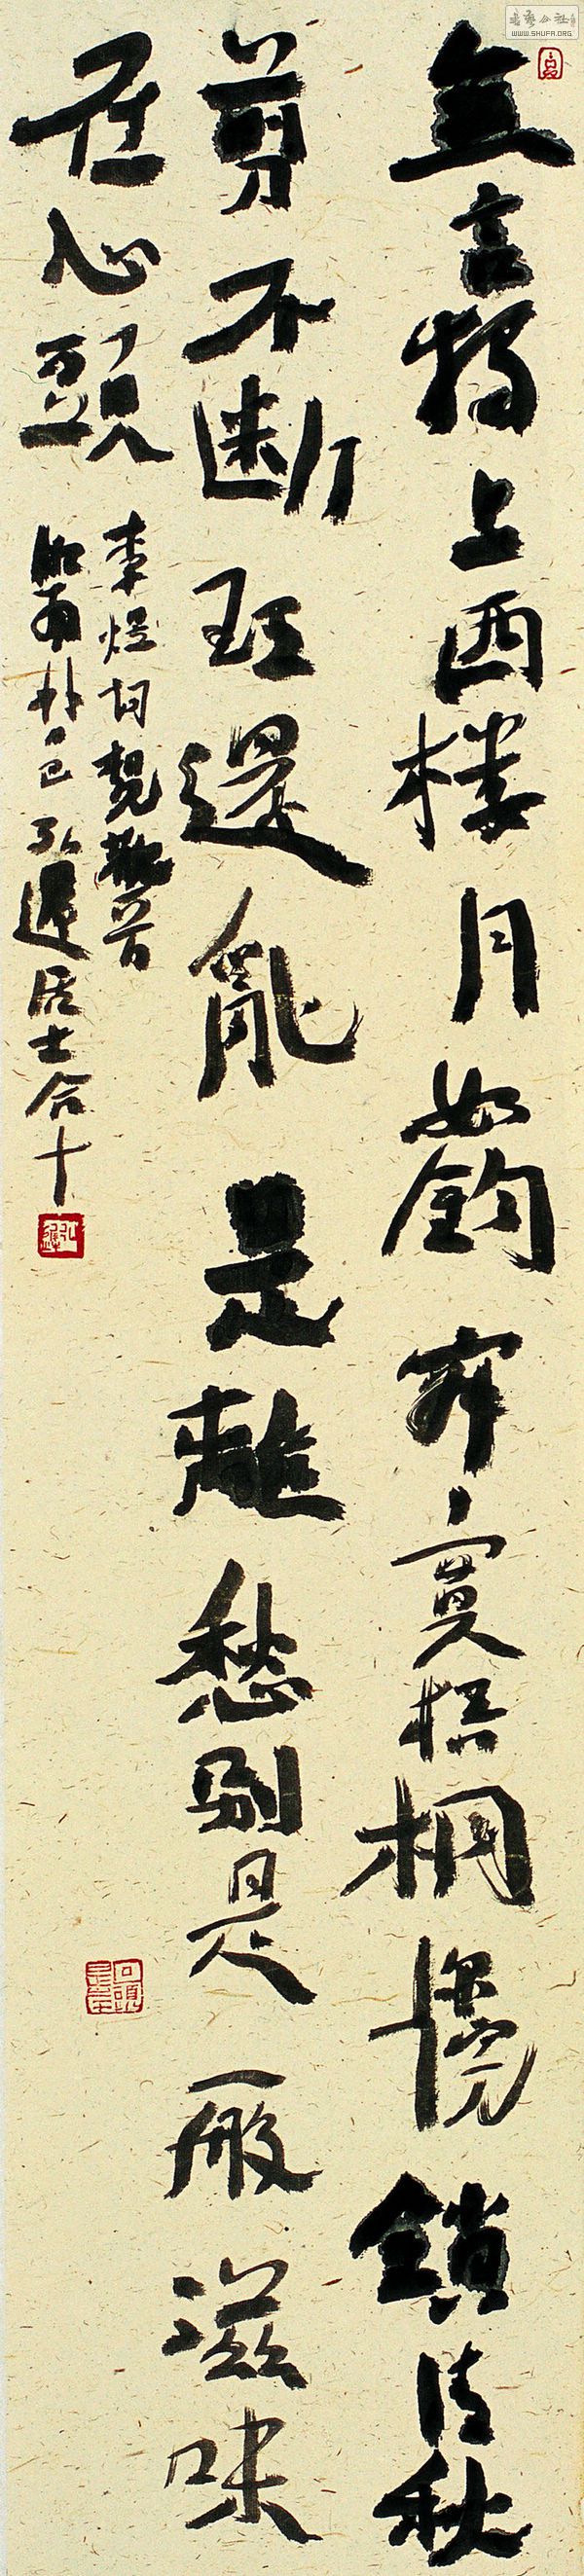 書藝公社
WWW.SHUFA.ORG
無言獨上西樓月如鈎寂寞梧桐深院鎖清秋
剪不斷理還亂是離愁別是一般滋味
在心頭
李煜詞相見歡一首
居士合十
回頭是岸